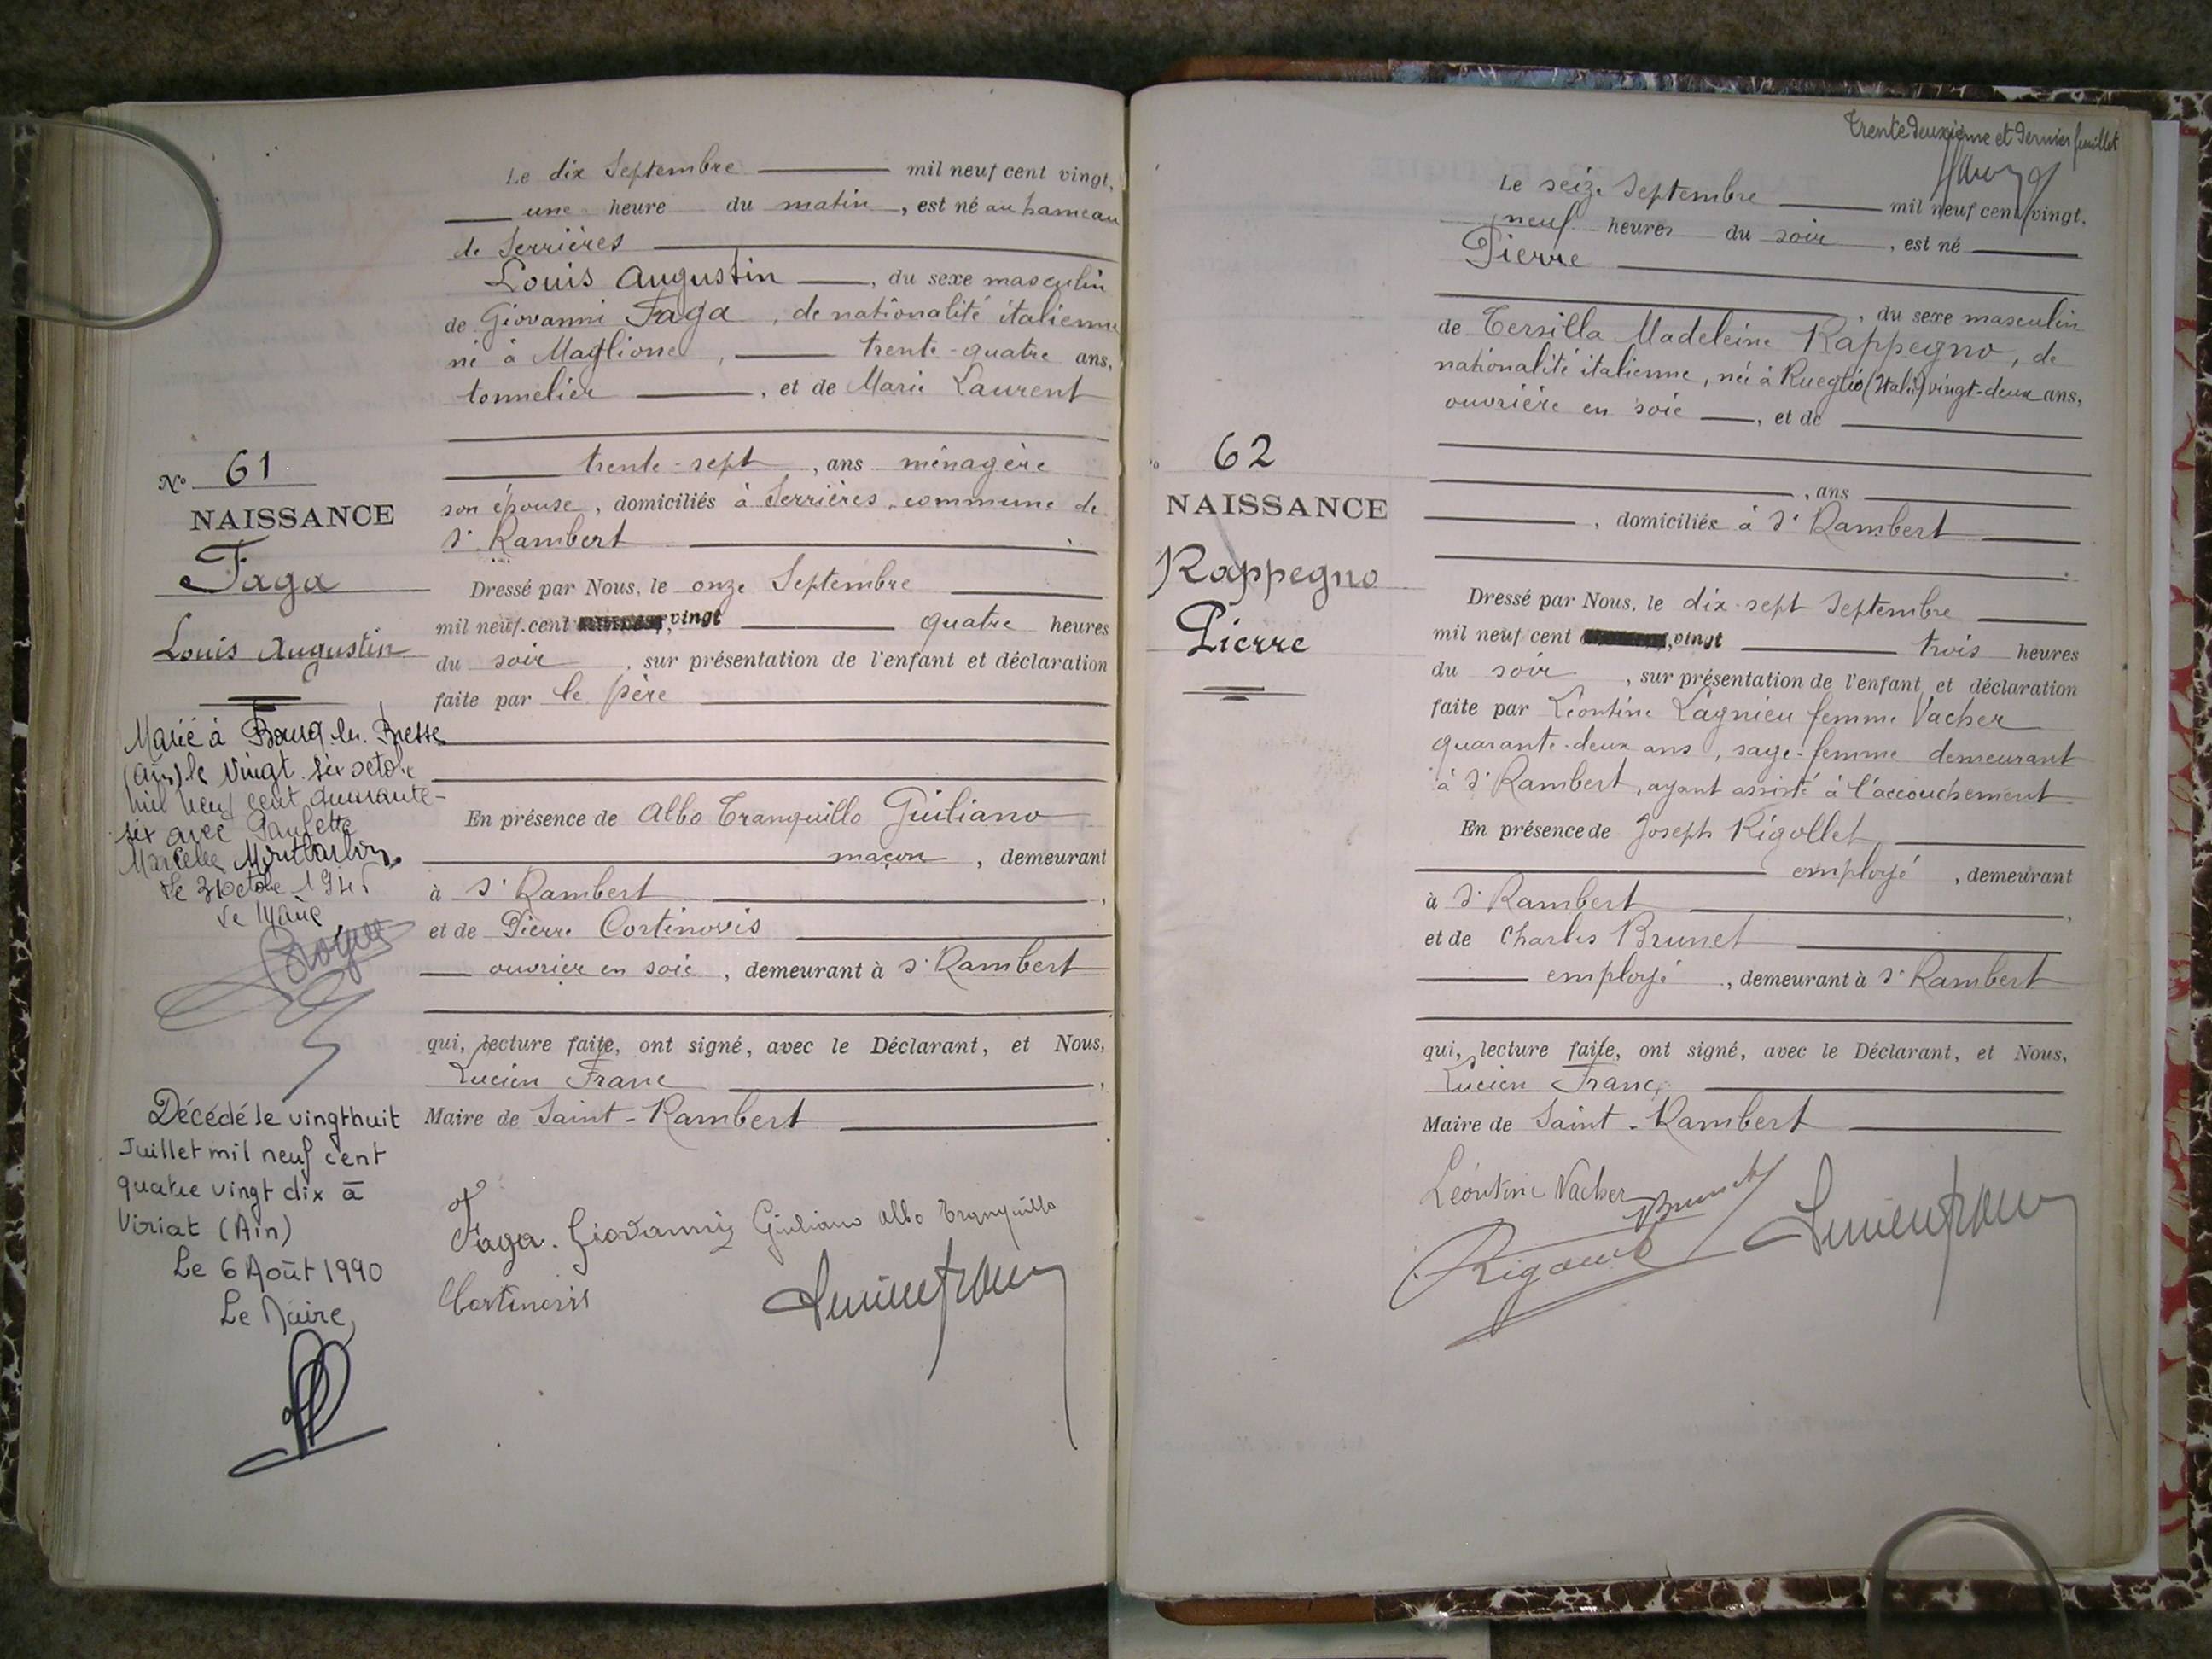 Le dix Septembre mil neuf cent vingt,
une heure du matin, est né au hameau
de Serrières
Louis Augustin, du sexe masculin
de Giovanni Faga, de nationalité italienne
né à Maglione, trente-quatre ans,
tonnelier, et de Marie Laurent
trente-sept, ans ménagère
son épouse, domiciliés à Serrières, commune de
St Rambert
Dressé par Nous, le onze Septembre
mil neuf cent vingt quatre heures
du soir, sur présentation de l'enfant et déclaration
faite par le père
En présence de Albo Tranquillo Guiliano
maçon, demeurant
à St Rambert,
et de Pierre Cortinovis
ouvrier en soie, demeurant à St Rambert
qui, lecture faite, ont signé, avec le Déclarant, et Nous,
Lucien Franc,
Maire de Saint-Rambert
Faga Giovanni Giuliano Albo Tranquillo
Cortinovis
No 61
NAISSANCE
Faga
Louis Augustin
Marié à Bourg-en-Bresse
(Ain) le vingt six octobre
mil neuf cent quarante-
six avec Paulette
Marcelle Montbarbon
Le 31 octobre 1946
Le Maire
Décédé le vingthuit
Juillet mil neuf cent
quatre vingt dix à
Viriat (Ain)
Le 6 Août 1990
Le Maire,
Trente deuxième et dernier feuillet
Le seize Septembre mil neuf cent vingt.
neuf heures du soir, est né
Pierre
, du sexe masculin
de Tersilla Madeleine Rappegno, de
nationalité italienne, née à Rueglio (Italie) vingt-deux ans,
ouvrière en soie, et de
, ans
, domiciliés à St Rambert
Dressé par Nous, le dix-sept Septembre
mil neuf cent vingt trois heures
du soir, sur présentation de l'enfant et déclaration
faite par Léontine Lagnieu femme Vacher
quarante-deux ans, sage-femme demeurant
à St Rambert, ayant assisté à l'accouchement
En présence de Joseph Rigollet
employé, demeurant
à St Rambert,
et de Charles Brunet
employé, demeurant à St Rambert
qui, lecture faite, ont signé, avec le Déclarant, et Nous,
Lucien Franc,
Maire de Saint-Rambert
Léontine Vacher Brunet
No 62
NAISSANCE
Rappegno
Pierre